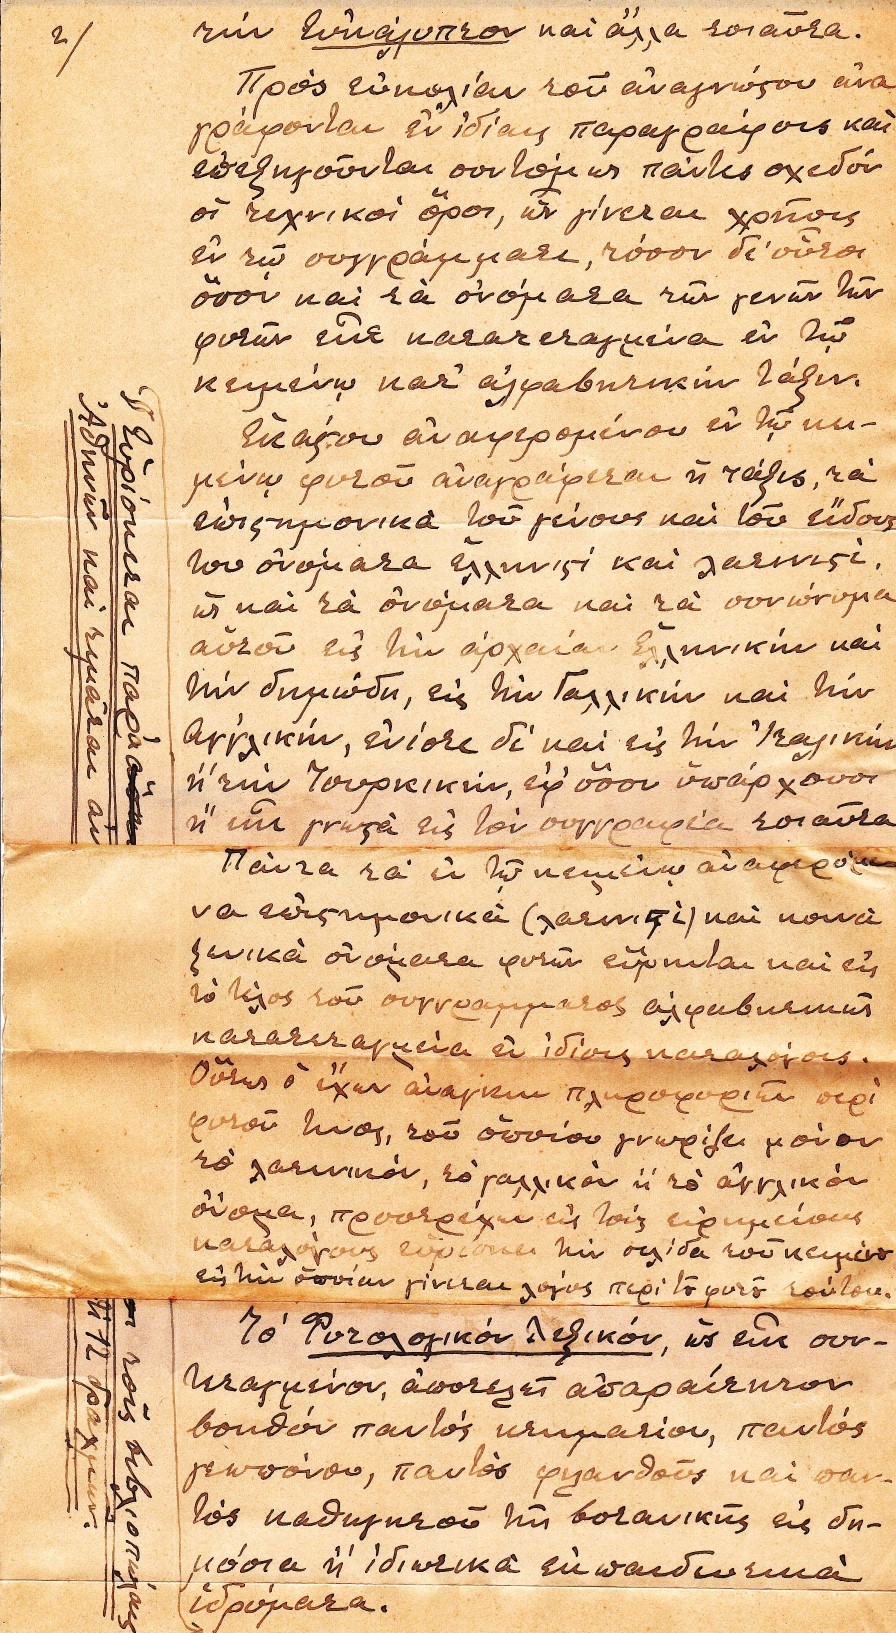 2/
τὴν Εὐκάλυπτον καὶ ἄλλα τοιαῦτα.
Πρὸς εὐκολίαν τοῦ ἀναγνώστου ἀνα
γράφονται ἐν ἰδίαις παραγράφοις καὶ
ἐπεξηγοῦνται συντόμως πάντες σχεδὸν
οἱ τεχνικοὶ ὅροι, ὧν γίνεται χρῆσις
ἐν τῷ συγγράμματι, τόσον δὲ οὗτοι
ὅσον καὶ τὰ ὀνόματα τῶν γενῶν τῶν
φυτῶν εἶνε κατατεταγμένα ἐν τῷ
κειμένῳ κατ' ἀλφαβητικὴν τάξιν.
Ἑκάστου ἀναφερομένου ἐν τῷ κει-
μένῳ φυτοῦ ἀναγράφεται ἡ τάξις, τὰ
ἐπιστημονικὰ τοῦ γένους καὶ τοῦ εἴδους
του ὀνόματα ἑλληνιστὶ καὶ λατινιστί,
ὡς καὶ τὰ ὀνόματα καὶ τὰ συνώνυμα
αὐτοῦ εἰς τὴν ἀρχαίαν Ἑλληνικὴν καὶ
τὴν δημώδη, εἰς τὴν Γαλλικὴν καὶ τὴν
Ἀγγλικὴν, ἐνίοτε δὲ καὶ εἰς τὴν Ἰταλικὴν
ἢ τὴν Τουρκικὴν, ἐφ' ὅσον ὑπάρχουσι
ἢ εἶνε γνωστὰ εἰς τὸν συγγραφέα τοιαῦτα
Πάντα τὰ ἐν τῷ κειμένῳ ἀναφερόμε
να ἐπιστημονικὰ (λατινιστὶ) καὶ κοινὰ
ξενικὰ ὀνόματα φυτῶν εὕρηνται καὶ εἰς
τὸ τέλος τοῦ συγγράμματος ἀλφαβητικῶς
κατατεταγμένα ἐν ἰδίοις καταλόγοις.
Οὕτως ὁ ἔχων ἀνάγκην πληροφοριῶν περὶ
φυτοῦ τινος, τοῦ ὁποίου γνωρίζει μόνον
τὸ λατινικὸν, τὸ γαλλικὸν ἢ τὸ ἀγγλικὸν
ὄνομα, προστρέχων εἰς τοὺς εἰρημένους
καταλόγους εὑρίσκει τὴν σελίδα τοῦ κειμένου
εἰς τὴν ὁποίαν γίνεται λόγος περὶ τοῦ φυτοῦ τούτου.
Τὸ Φυτολογικὸν Λεξικὸν, ὡς εἶνε συν-
τεταγμένον, ἀποτελεῖ ἀπαραίτητον
βοηθὸν παντὸς κτηματίου, παντὸς
γεωπόνου, παντὸς φιλανθοῦς καὶ παν-
τὸς καθηγητοῦ τῆς βοτανικῆς εἰς δη-
μόσια ἢ ἰδιωτικὰ ἐκπαιδευτικὰ
ἱδρύματα.
Εὑρίσκεται παρὰ τοῖς βιβλιοπώλαις
Ἀθηνῶν καὶ τιμᾶται ἀντὶ 12 δραχμῶν.